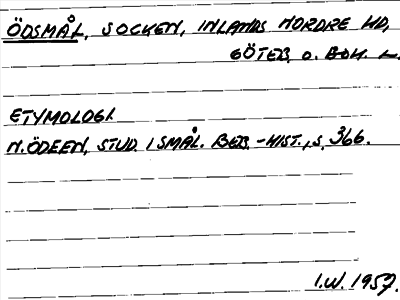 ÖDSMÅL, SOCKEN, INLANDS NORDRE HD,
GÖTEB. O. BOH. L.
ETYMOLOGI.
N. ÖDEEN, STUD. I SMÅL. BEB.-HIST., S. 366.
I.W. 1957.